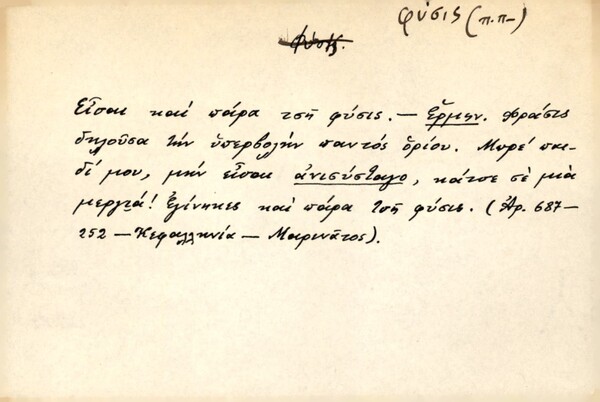 φύσις (π.π-)
φύσις.
Εἶσαι καί πάρα τσῆ φύσις. — Ἑρμην. Φράσις
δηλοῦσα τήν ὑπερβολήν παντός ὁρίου. Μωρέ παι-
δί μου, μήν εἶσαι ἀνισύσταγο, κάτσε σέ μιά
μεργιά! Ἐγίνηκες καί πάρα τσῆ φύσις. (Ἀρ. 687—
252 — Κεφαλληνία — Μαρινᾶτος).